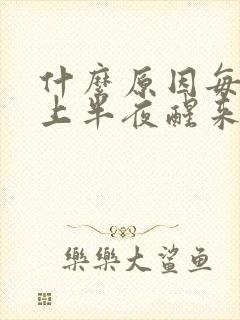 什麼原因每
上半夜醒来
樂樂大鯊鱼